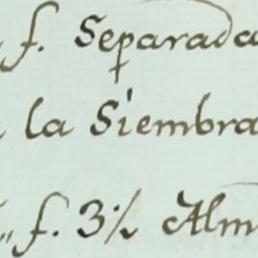 f. Separada
la Siembra
„ f. 3⅟ Alm